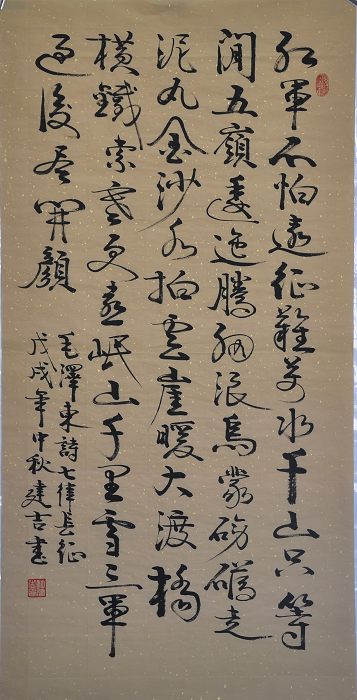 紅軍不怕遠征難萬水千山只等
閒五嶺逶迤騰細浪烏蒙磅礴走
泥丸金沙水拍雲崖暖大渡橋
橫鐵索寒更喜岷山千里雪三軍
過後盡開顏
毛澤東詩七律長征
戊戌年中秋建吉書